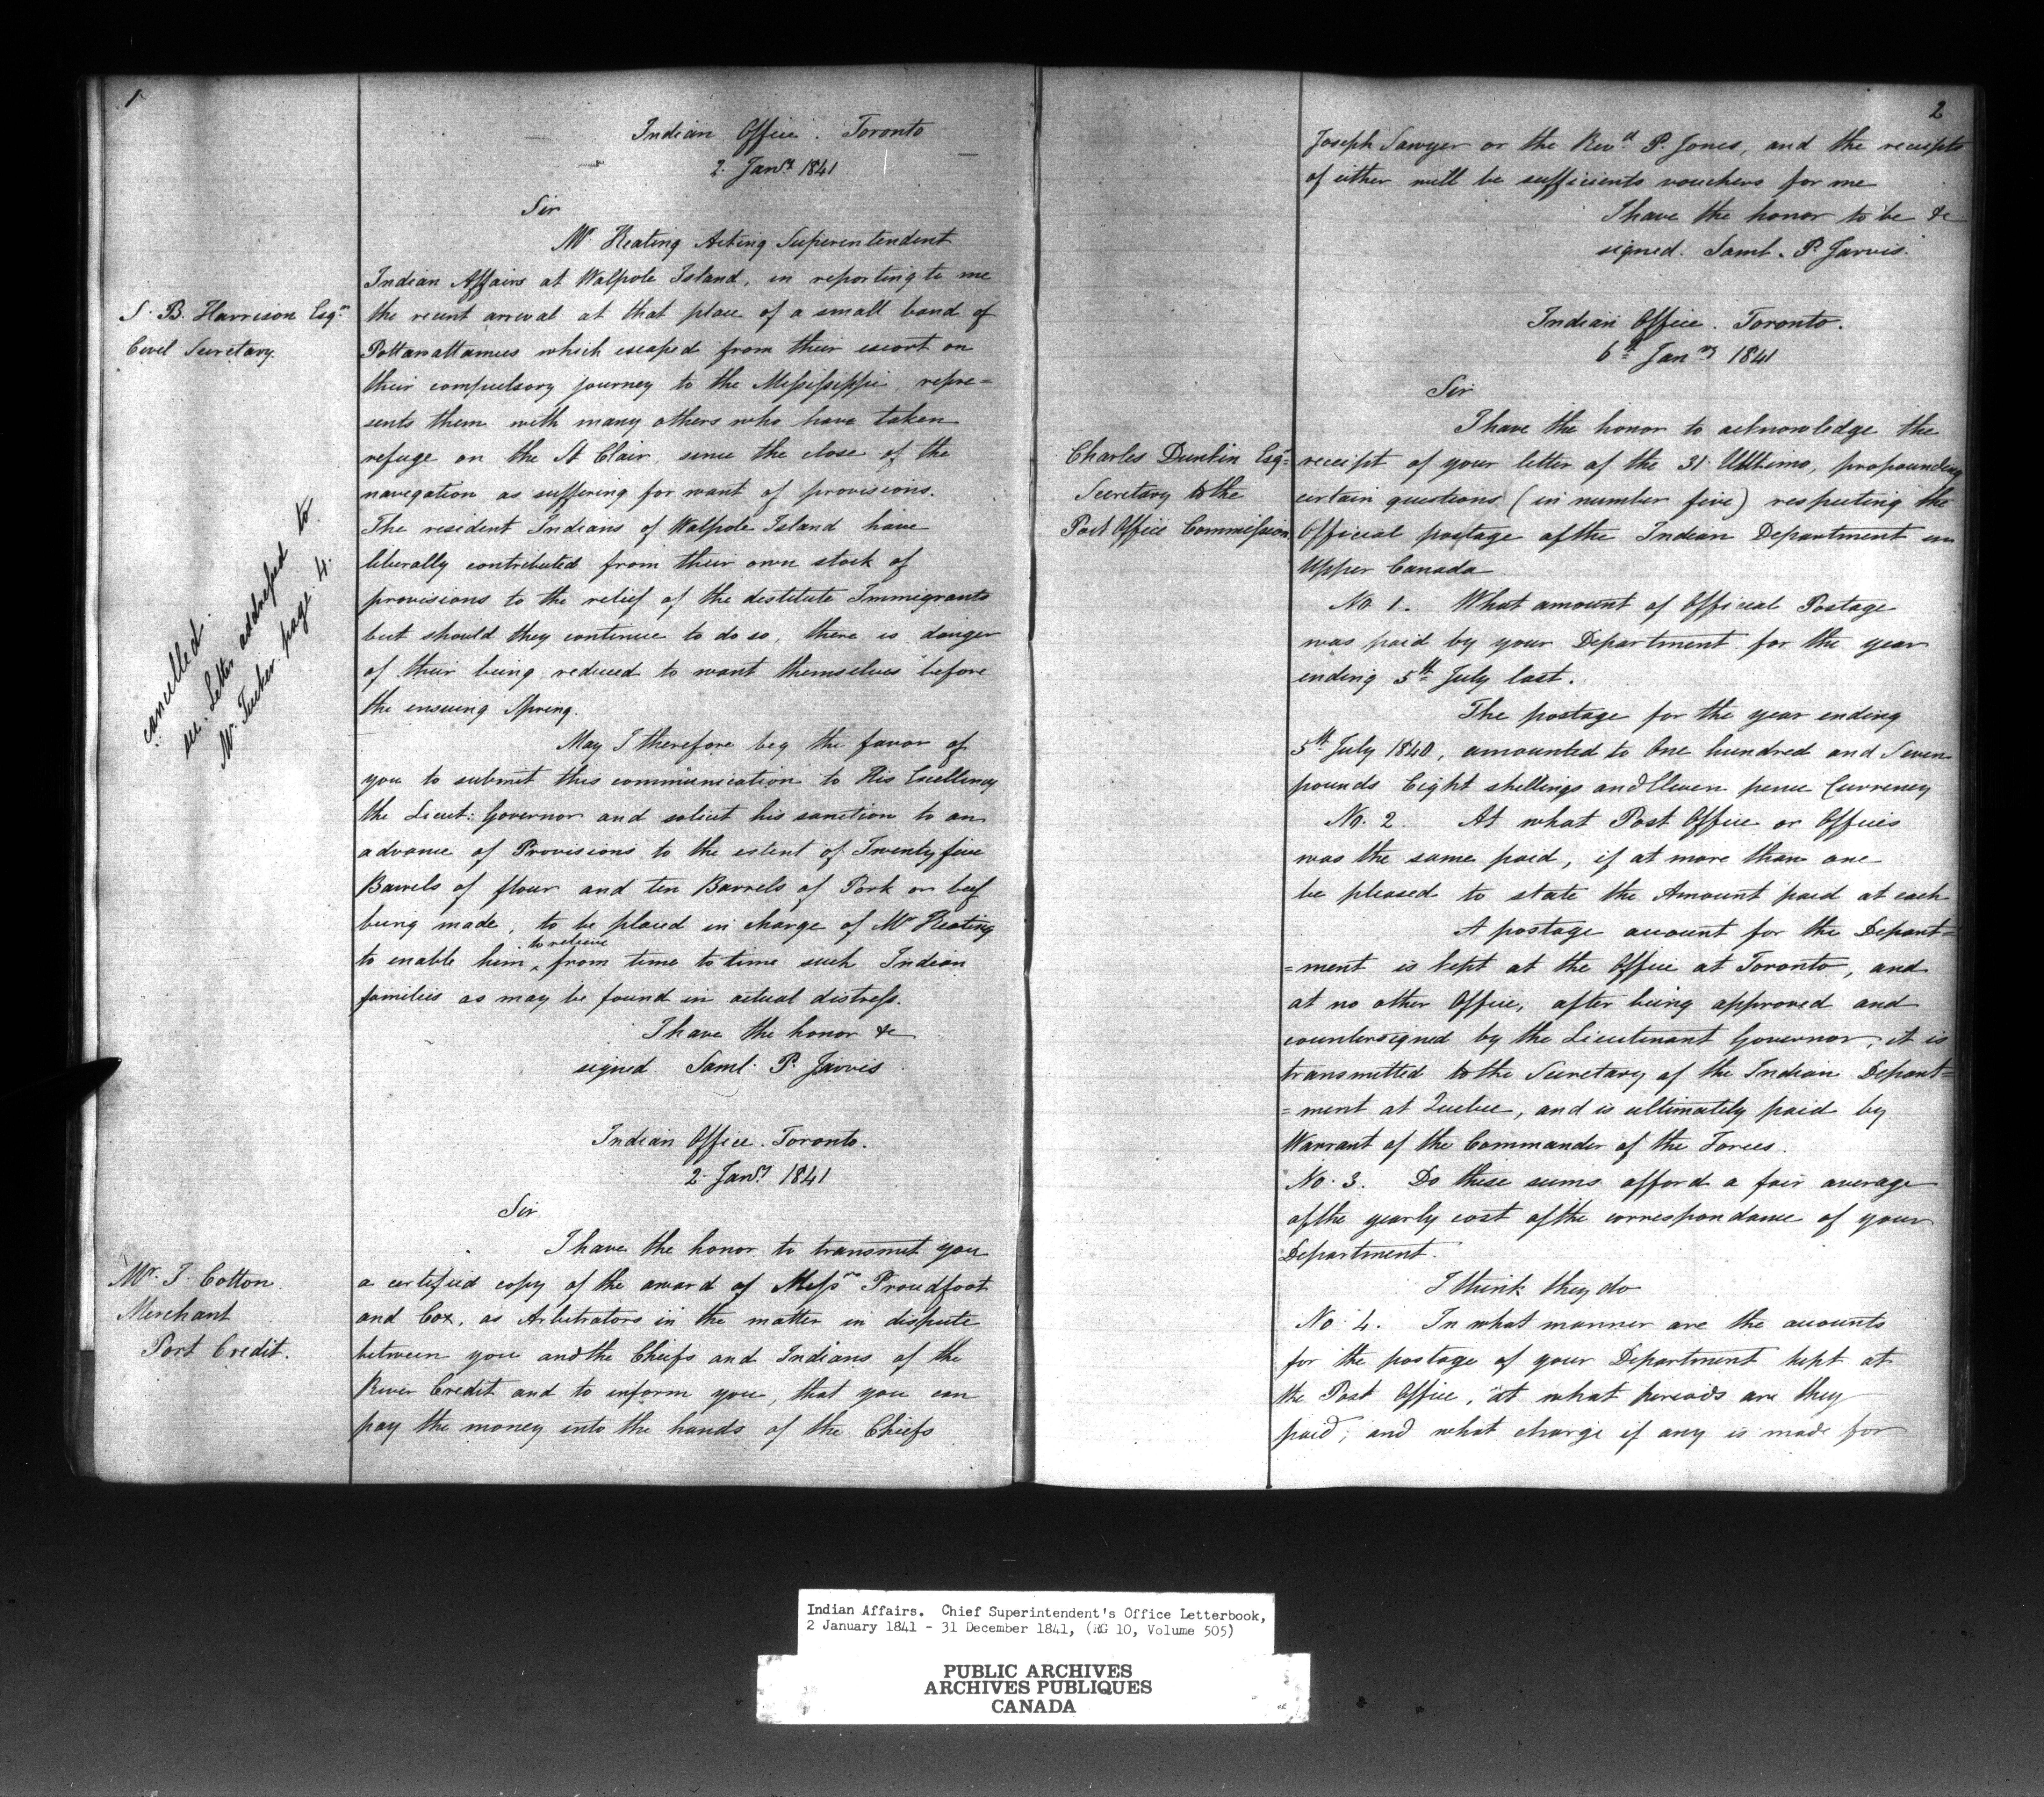 1
Indian Office. Toronto
2. Jany 1841
Sir
Mr. Keating Acting Superintendent
Indian Affairs at Walpole Island, in reporting to me
S. B. Harrison Esqre
Civil Secretary.
the recent arrival at that place of a small band of
Pottawattamies which escaped from their escort on
their compulsory journey to the Mississippi, repre=
sents them with many others who have taken
refuge on the St Clair, since the close of the
navegation as suffering for want of provisions.
The resident Indians of Walpole Island have
liberally contributed from their own stock of
provisions to the relief of the destitute Immigrants
but should they continue to do so, there is danger
of their being reduced to want themselves before
the ensuing Spring.
cancelled.
see. Letter addressed to
Mr. Tucker page 4.
May I therefore beg the favor of
you to submit this communication to His Excellency
the Lieut: Governor and solicit his sanction to an
advance of Provisions to the extent of Twenty five
Barrels of flour and ten Barrels of Pork or beef
being made, to be placed in charge of Mr Keating
to enable him ^ to relieve from time to time such Indian
families as may be found in actual distress.
I have the honor &c
signed Saml. P. Jarvis
Indian Office. Toronto.
2. Jany 1841
Sir
I have the honor to transmit you
Mr. J. Cotton
Merchant
Port Credit.
a certified copy of the award of Messrs Proudfoot
and Cox, as Arbitrators in the matter in dispute
between you and the Chiefs and Indians of the
River Credit and to inform you, that you can
pay the money into the hands of the Chiefs
2
Joseph Sawyer or the Revd P. Jones, and the receipts
of either will be sufficients vouchers for me
I have the honor to be &c
signed. Saml. P. Jarvis.
Indian Office. Toronto.
6th Jany 1841
Sir
I have the honor to acknowledge the
Charles Dunkin Esqre
Secretary to the
Post Office Commission
receipt of your letter of the 31 Ultimo, propounding
certain questions (in number five) respecting the
Official postage of the Indian Department in
Upper Canada
No. 1. What amount of Official Postage
was paid by your Department for the year
ending 5th July last.
The postage for the year ending
5th July 1840, amounted to One hundred and Seven
pounds Eight shillings and Eleven pence Currency
No. 2. At what Post Office or Offices
was the same paid, if at more than one
be pleased to state the Amount paid at each
A postage account for the Depart=
=ment is kept at the Office at Toronto, and
at no other Office; after being approved and
countersigned by the Lieutenant Governor, it is
transmitted to the Secretary of the Indian Depart=
=ment at Quebec, and is ultimately paid by
Warrant of the Commander of the Forces.
No. 3. Do these sums afford a fair average
of the yearly cost of the correspondance of your
Department.
I think they do
No. 4. In what manner are the accounts
for the postage of your Department kept at
the Post Office, at what periods are they
paid; and what charge if any is made for
Indian Affairs. Chief Superintendent's Office Letterbook,
2 January 1841 - 31 December 1841, (RG 10, Volume 505)
PUBLIC ARCHIVES
ARCHIVES PUBLIQUES
CANADA